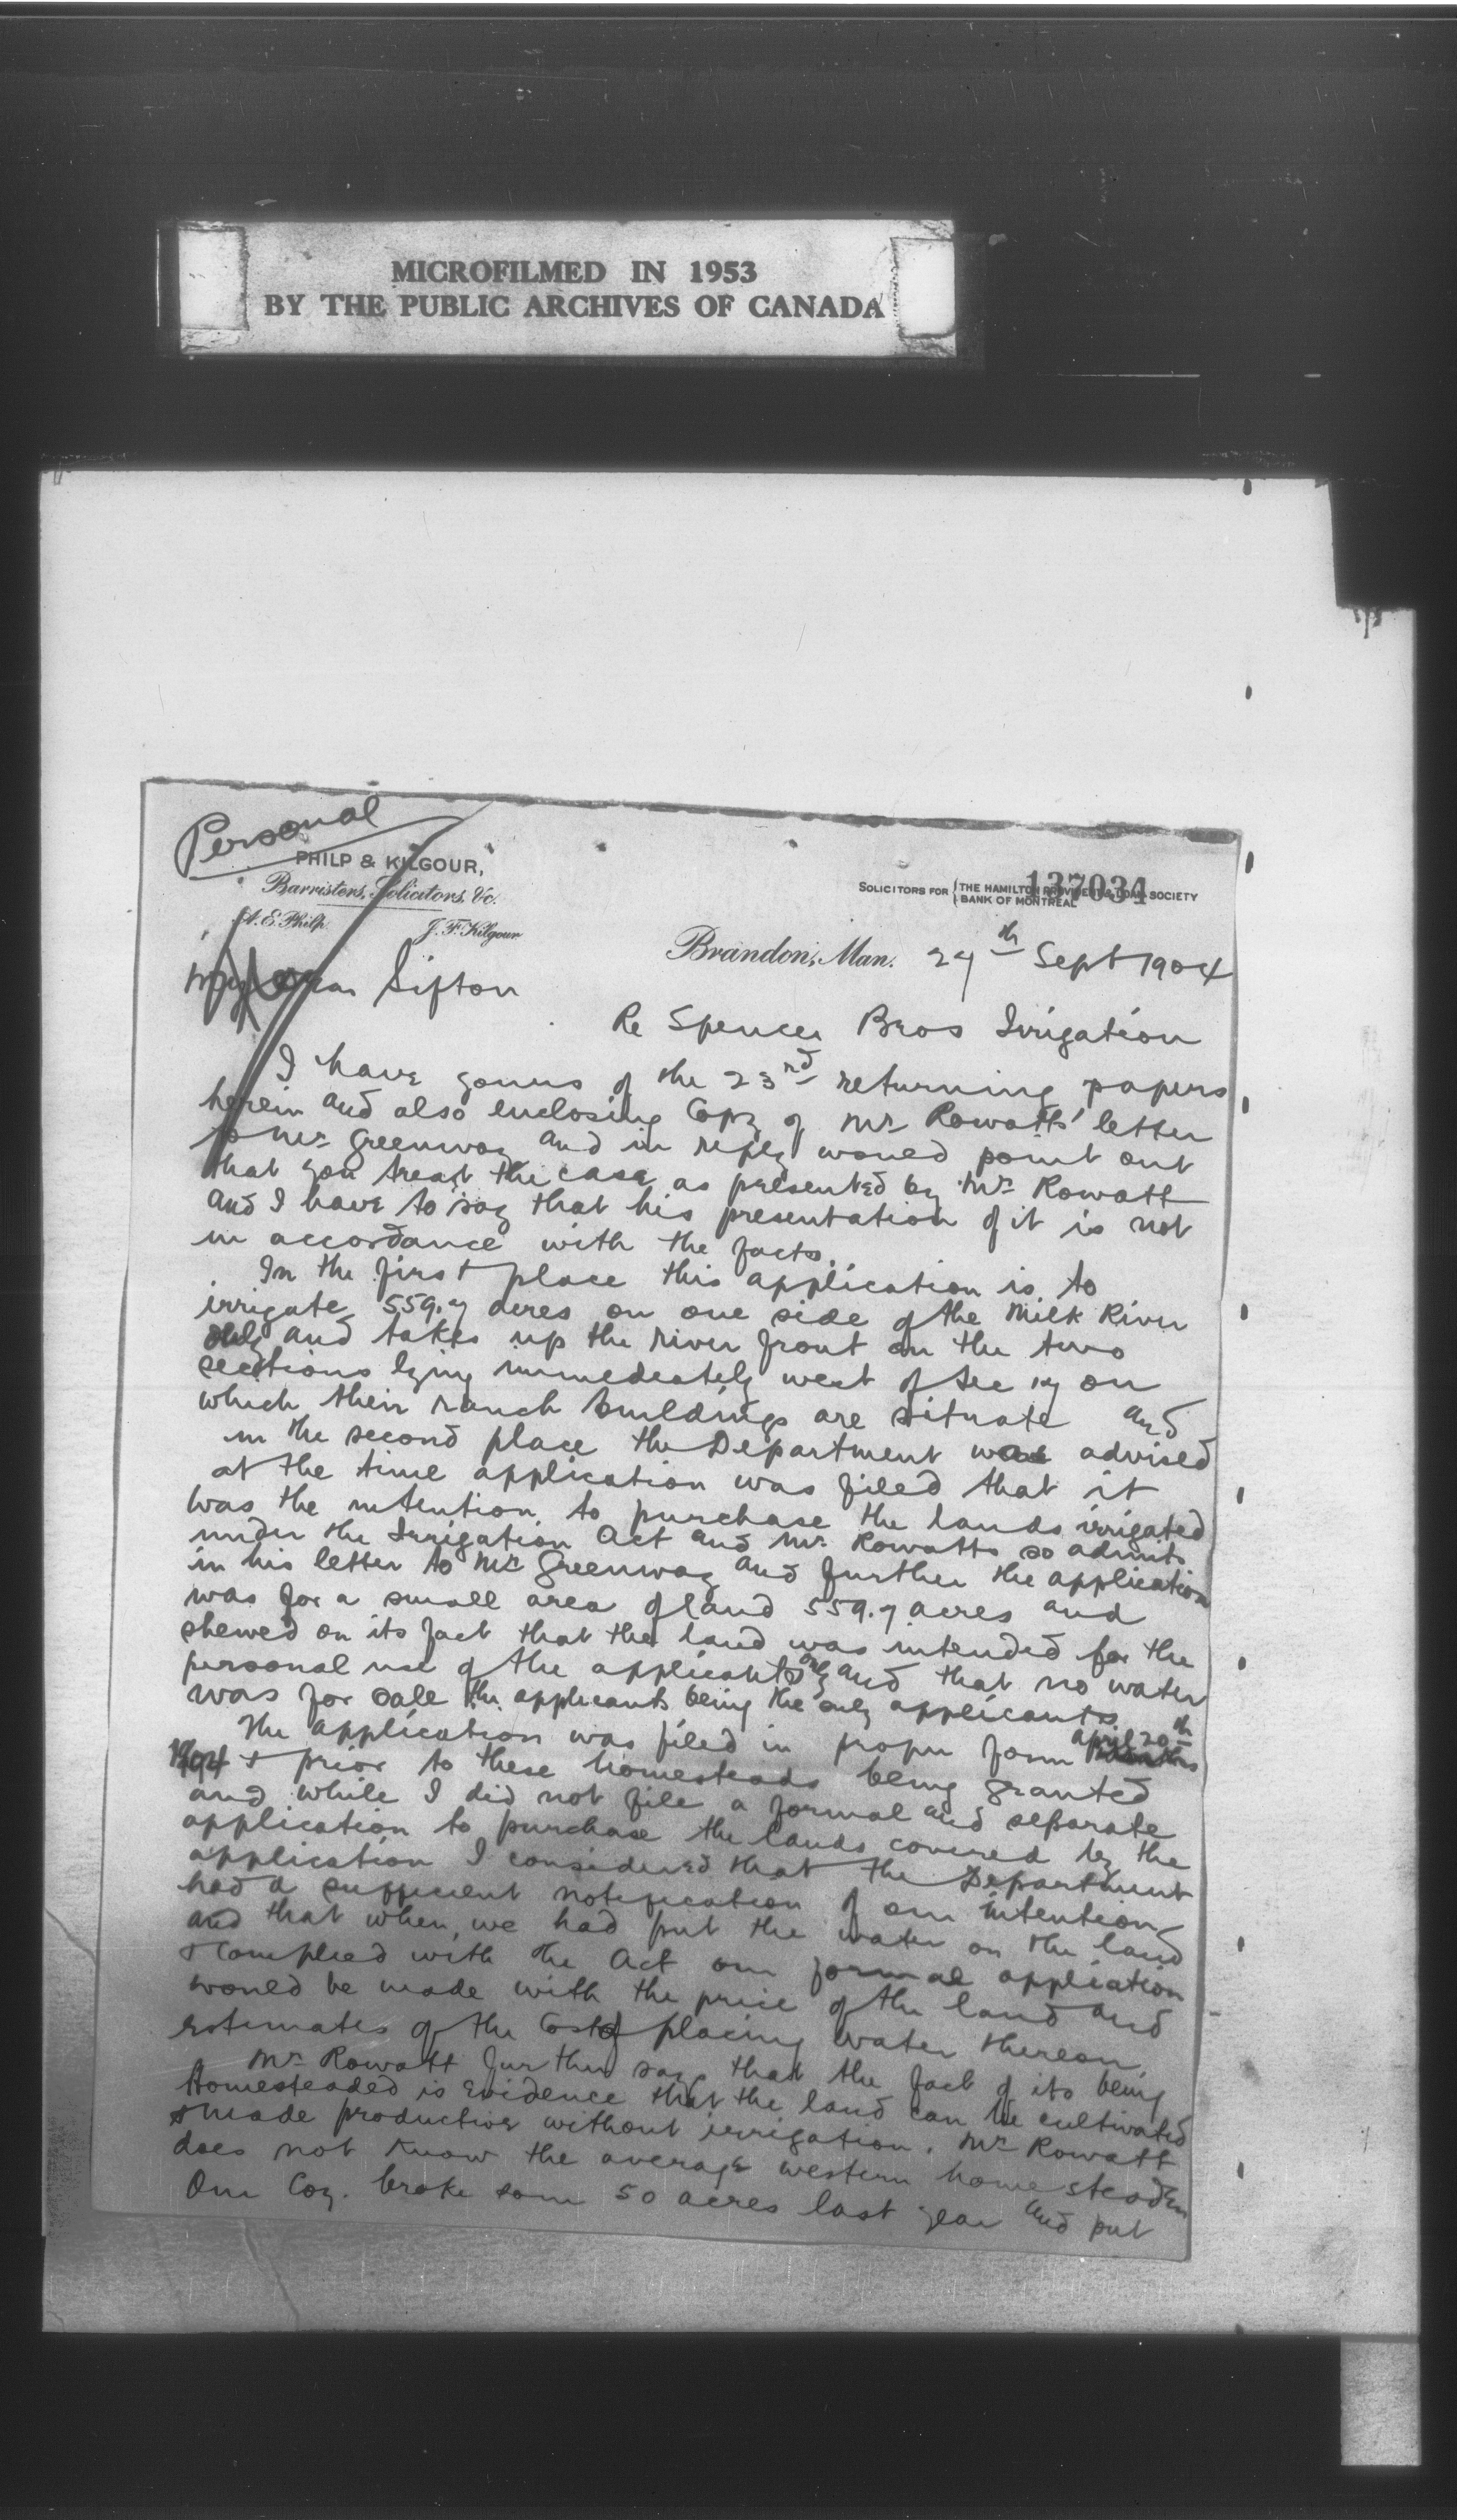 MICROFILMED IN 1953
BY THE PUBLIC ARCHIVES OF CANADA
Personal
PHILP & KILGOUR,
Barristers, Solicitors, &c.
A. E. Philp J. F. Kilgour
SOLICITORS FOR THE HAMILTON PROVIDENT & LOAN SOCIETY
BANK OF MONTREAL
137034
Brandon, Man. 27th Sept 1904
My Dear Sifton
Re Spencer Bros Irrigation
I have yours of the 23rd returning papers
herein and also enclosing Copy of Mr Rowatts' letter
to Mr Greenway and in reply would point out
that you treat the case as presented by Mr Rowatt
and I have to say that his presentation of it is not
in accordance with the facts.
In the first place this application is to
irrigate 559.7 acres on one side of the Milk River
only and takes up the river front on the two
sections lying immediately west of Sec 17 on
which their ranch buildings are situate and
in the second place the Department was advised
at the time application was filed that it
was the intention to purchase the lands irrigated
under the Irrigation Act and Mr Rowatts so admits
in his letter to Mr Greenway and further the application
was for a small area of land 559.7 acres and
shewed on its fact that the land was intended for the
personal use of the applicants only and that no water
was for sale the applicants being the only applicants
The application was filed in proper form April 20th
1904 & prior to these homesteads being granted
and while I did not file a formal and separate
application to purchase the lands covered by the
application I considered that the Department
had a sufficient notification of our intention
and that when we had put the water on the land
& complied with the Act our formal appliation
would be made with the price of the land and
estimates of the Cost of placing water thereon.
Mr Rowatt further says that the fact of its being
Homesteaded is evidence that the land can be cultivated
& made productive without irrigation. Mr Rowatt
does not know the average western homesteader
Our Coy. broke some 50 acres last year and put